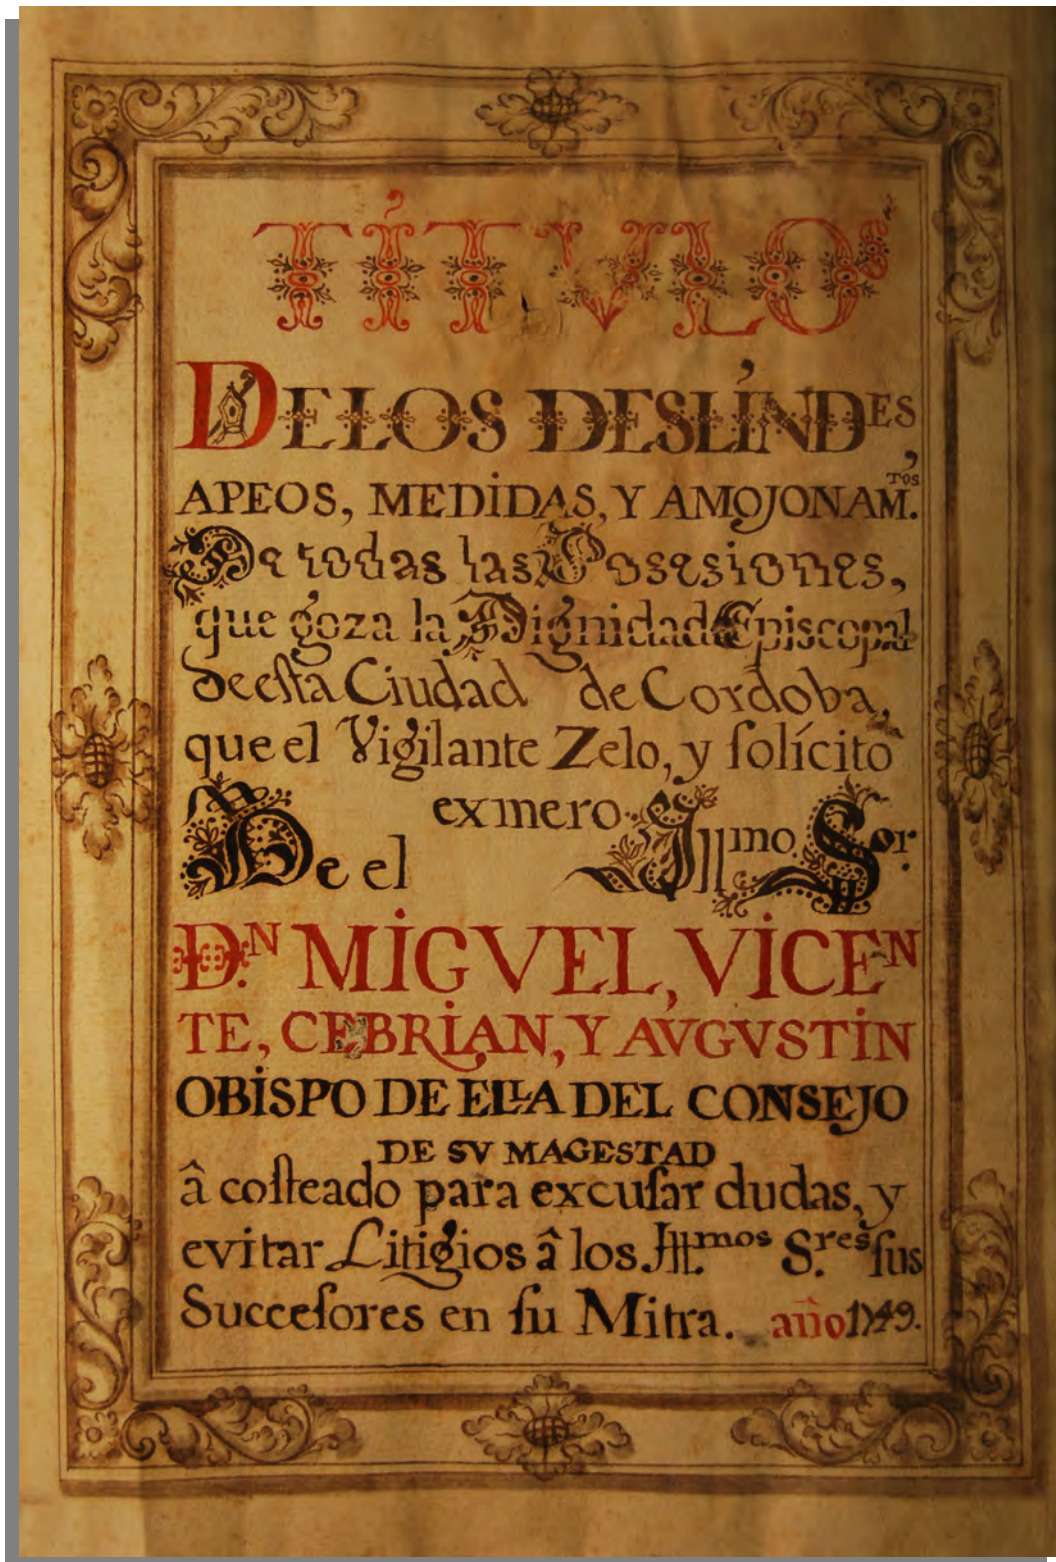 TÍTVLOs
DE LOS DESLÍNDES,
APEOS, MEDIDAS, Y AMOJONAM.TOS
De todas las Posesiones,
que goza la Dignidad Episcopal
de eſta Ciudad de Cordoba,
que el Vigilante Zelo, y ſolícito
exmero
De el Jllmo. Sor.
D.N MIGVEL, VICEN
TE, CEBRIAN, Y AVGVSTIN
OBISPO DE ELLA DEL CONSEJO
DE SV MAGESTAD
â coſteado para excuſar dudas, y
evitar Litigios â los Jll.mos S.res ſus
Succeſores en ſu Mitra. año 1749.